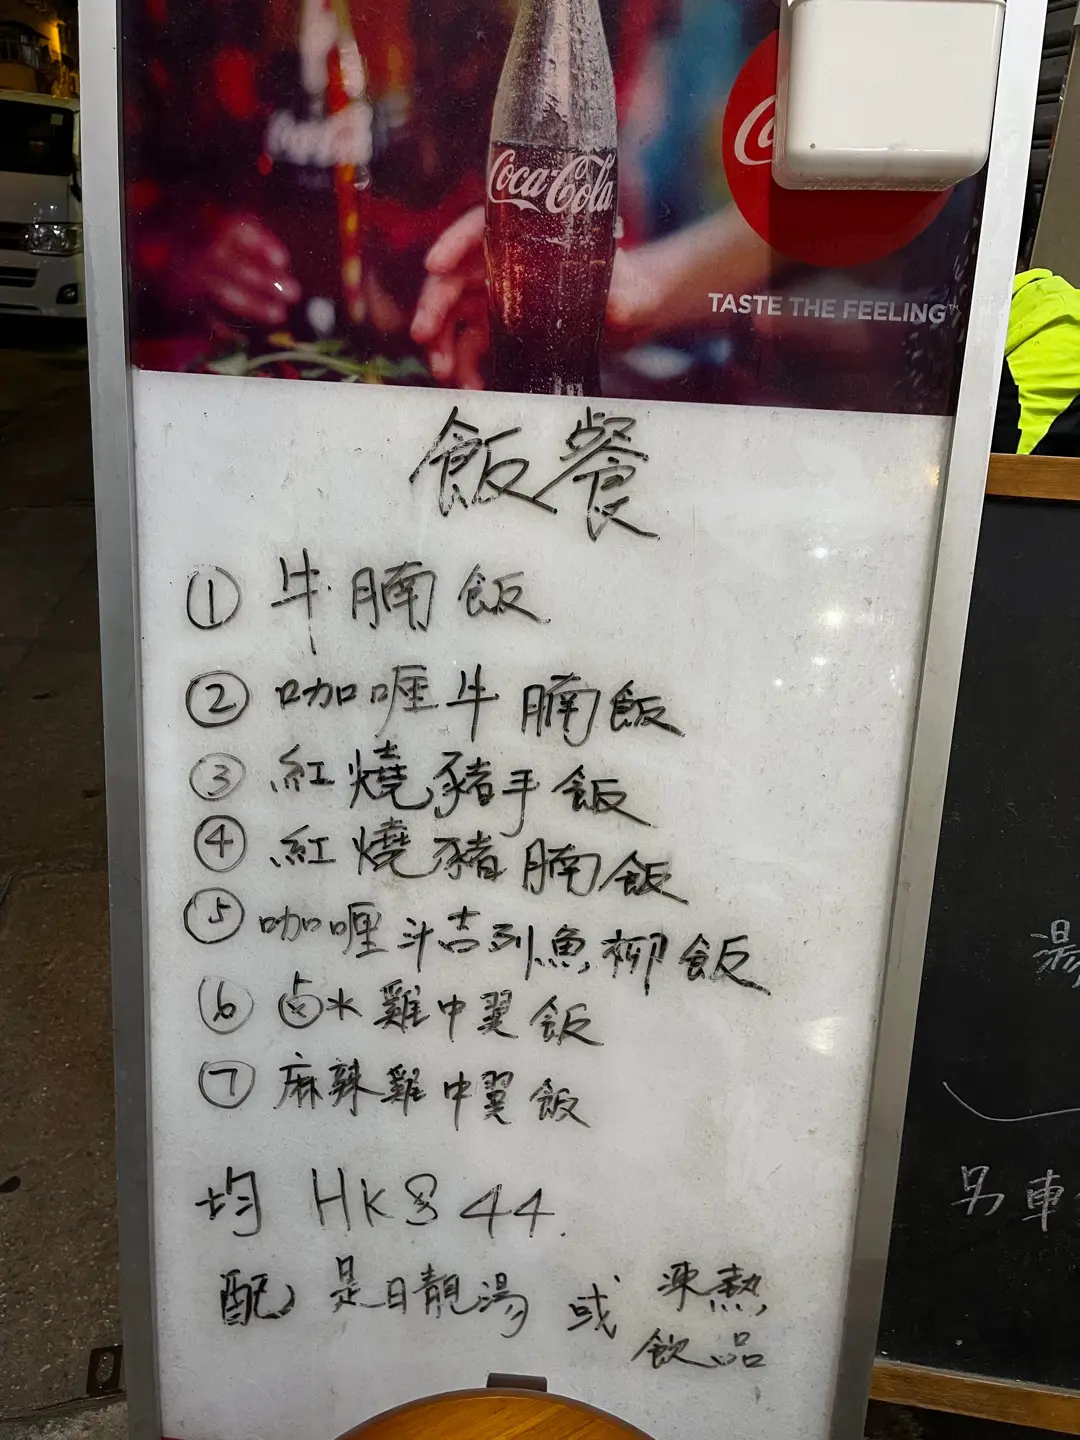 Coca-Cola
TASTE THE FEELING
飯餐
① 牛腩飯
② 咖喱牛腩飯
③ 紅燒豬手飯
④ 紅燒豬腩飯
⑤ 咖喱斗吉列魚柳飯
⑥ 卤水雞中翼飯
⑦ 麻辣雞中翼飯
均 HK$ 44.
配 是日靚湯 或 凍熱
飲品
湯
另車